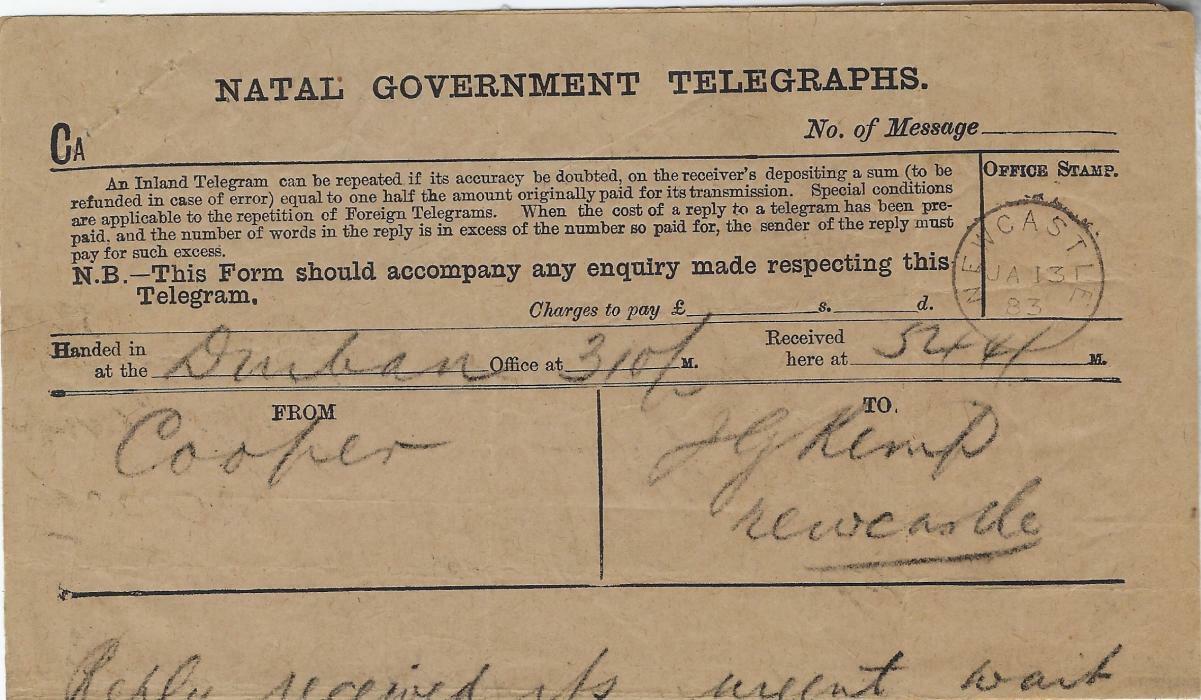 NATAL GOVERNMENT TELEGRAPHS.
CA
No. of Message
An Inland Telegram can be repeated if its accuracy be doubted, on the receiver's depositing a sum (to be
refunded in case of error) equal to one half the amount originally paid for its transmission. Special conditions
are applicable to the repetition of Foreign Telegrams. When the cost of a reply to a telegram has been pre-
paid, and the number of words in the reply is in excess of the number so paid for, the sender of the reply must
pay for such excess.
N.B.—This Form should accompany any enquiry made respecting this
Telegram.
Charges to pay £ s. d.
OFFICE STAMP.
NEWCASTLE
JA 13
83
Handed in
at the Durban Office at 310 p M.
Received
here at 544 M.
FROM
Cooper
TO.
J G Kemp
Newcastle
Reply received its urgent wait